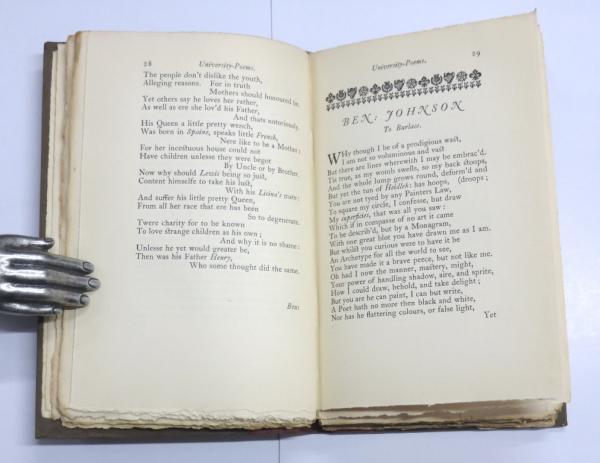 28
University-Poems.
The people don't dislike the youth,
Alleging reasons. For in truth
Mothers should honoured be.
Yet others say he loves her rather,
As well as ere she lov'd his Father,
And thats notoriously.
His Queen a little pretty wench,
Was born in Spaine, speaks little French,
Nere like to be a Mother:
For her incestuous house could not
Have children unlesse they were begot
By Uncle or by Brother.
Now why should Lewis being so just,
Content himselfe to take his lust,
With his Licina's mate:
And suffer his little pretty Queen,
From all her race that ere has been
So to degenerate.
Twere charity for to be known
To love strange children as his own;
And why it is no shame:
Unlesse he yet would greater be,
Then was his Father Henry,
Who some thought did the same.
Ben:
University-Poems.
29
BEN: JOHNSON
To Burlace.
WHy though I be of a prodigious wast,
I am not so voluminous and vast
But there are lines wherewith I may be embrac'd.
Tis true, as my womb swells, so my back stoops,
And the whole lump grows round, deform'd and
But yet the tun of Heidleb: has hoops, (droops;
You are not tyed by any Painters Law,
To square my circle, I confesse, but draw
My superficies, that was all you saw:
Which if in compasse of no art it came
To be describ'd, but by a Monagram,
With one great blot you have drawn me as I am.
But whilst you curious were to have it be
An Archetype for all the world to see,
You have made it a brave peece, but not like me.
Oh had I now the manner, mastery, might,
Your power of handling shadow, aire, and sprite,
How I could draw, behold, and take delight;
But you are he can paint, I can but write,
A Poet hath no more then black and white,
Nor has he flattering colours, or false light,
Yet